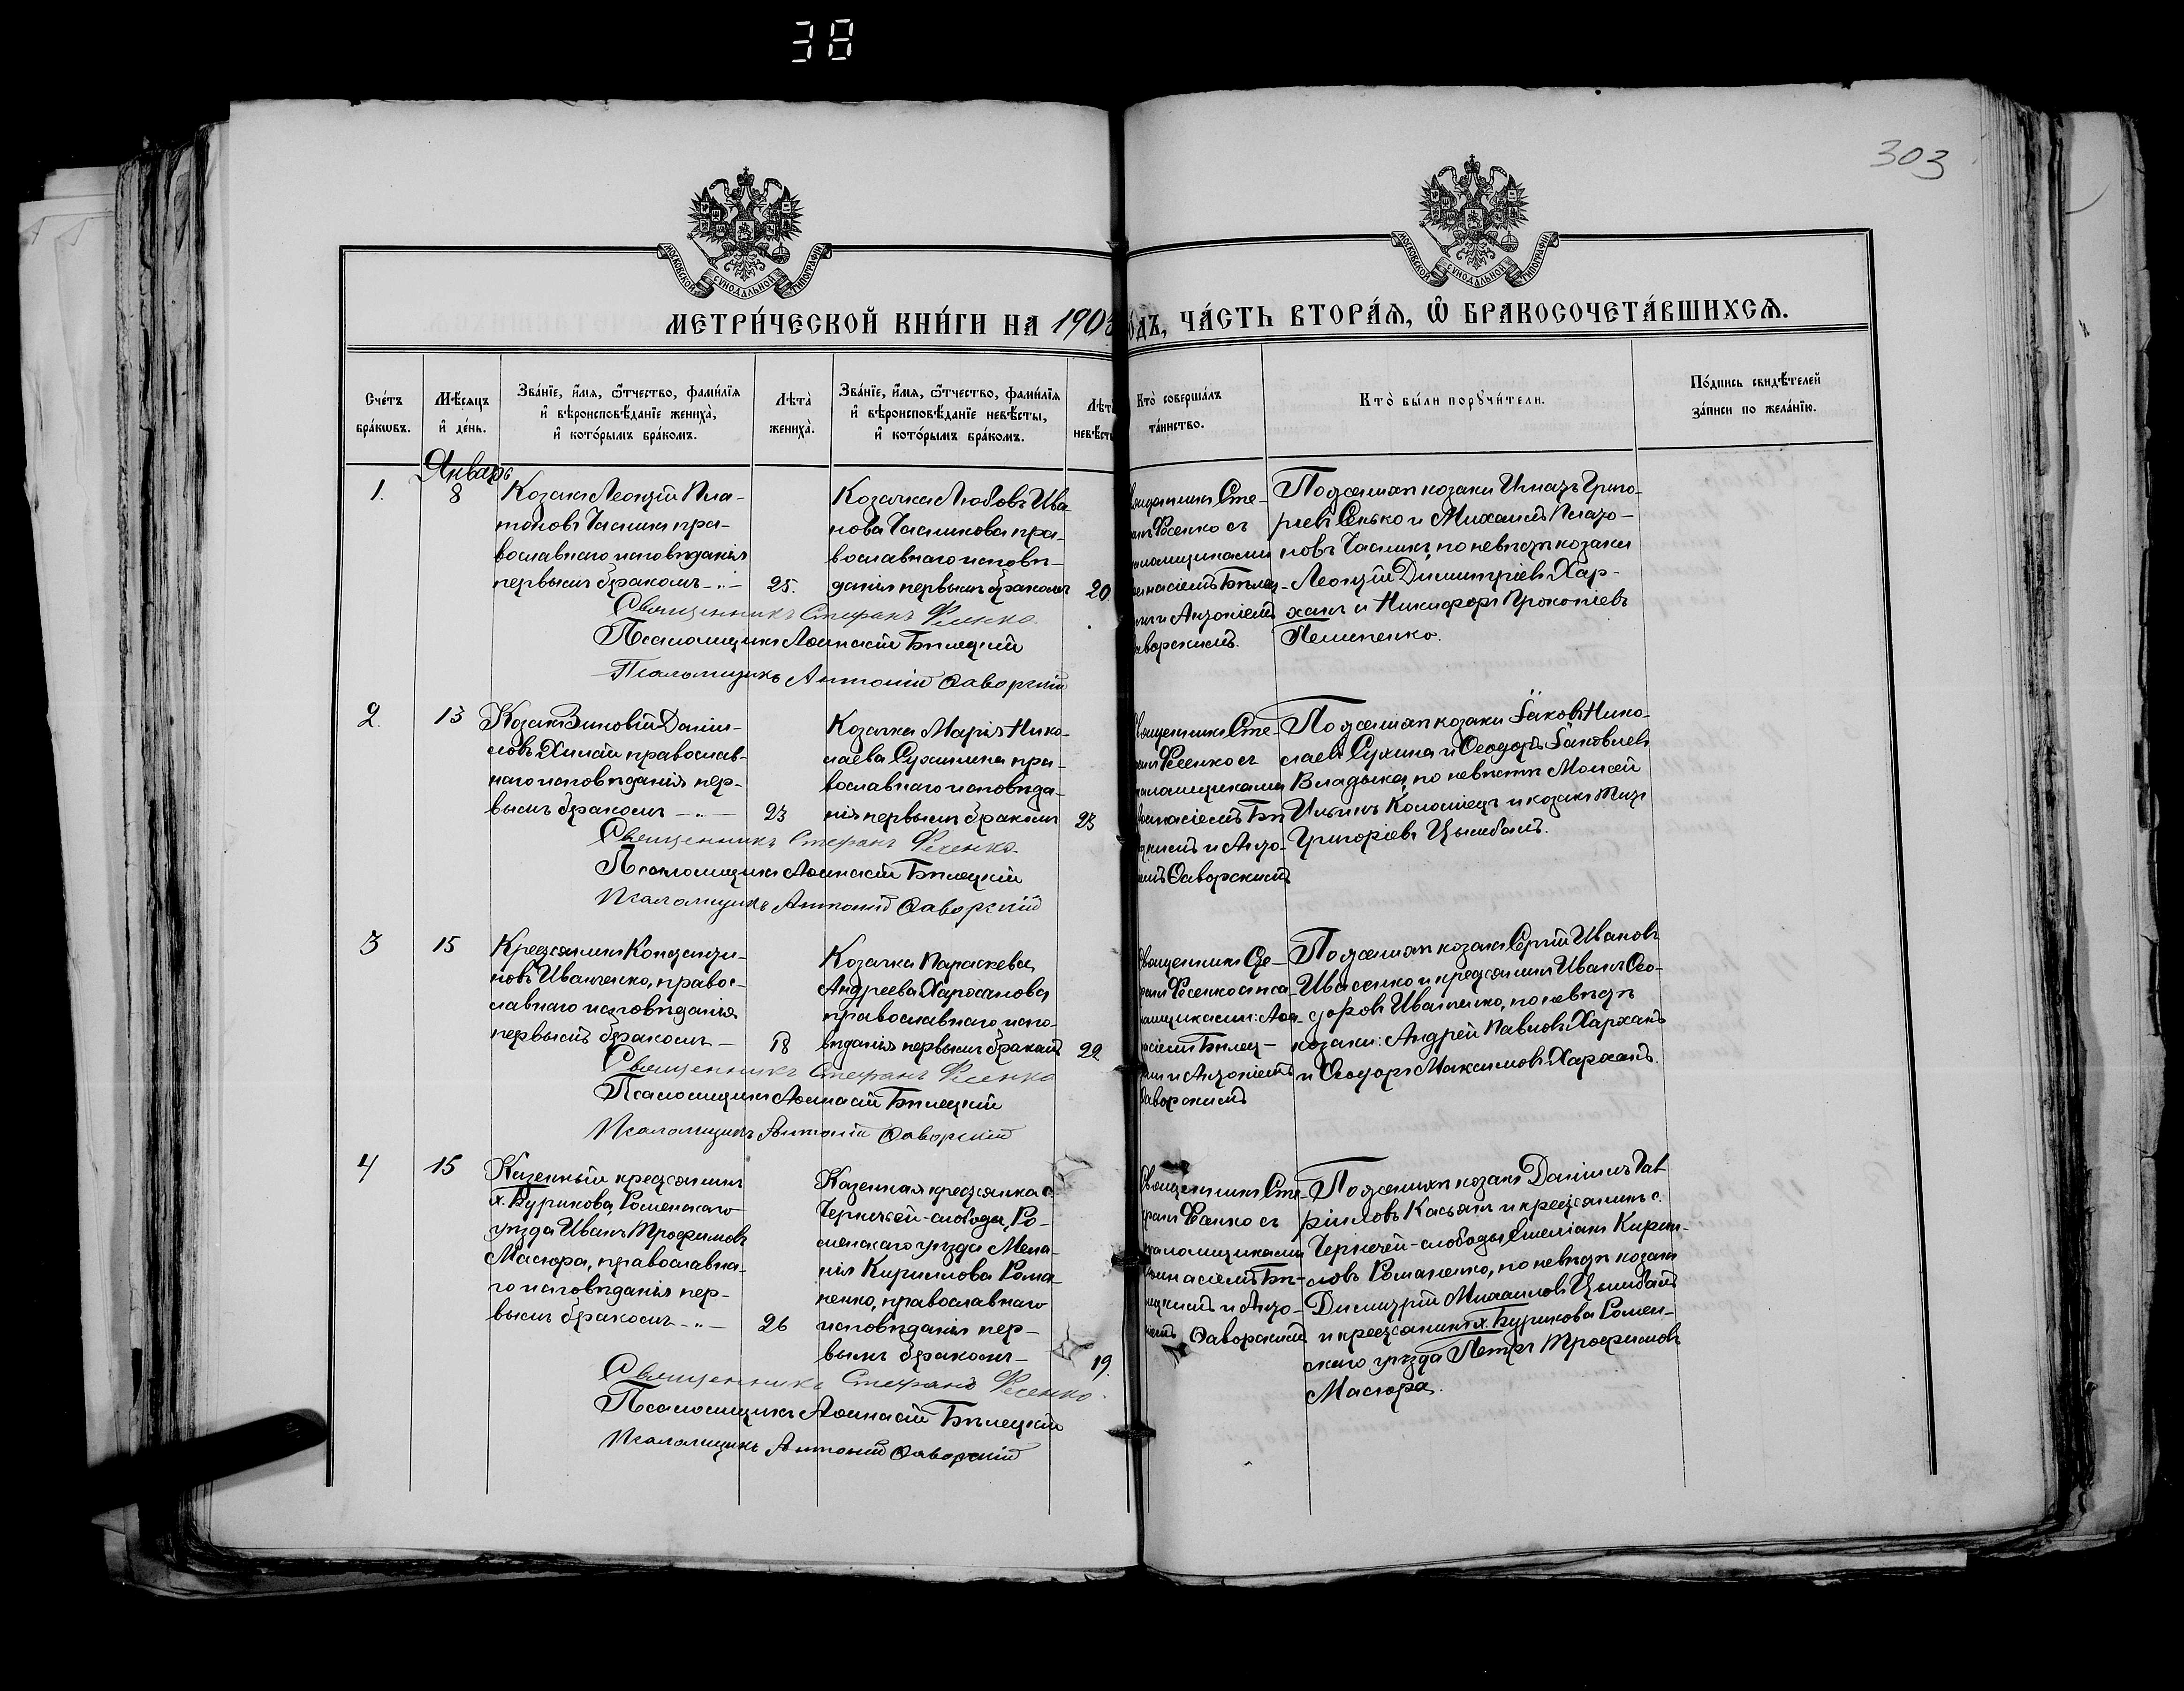 38
303
МОСКОВСКОЙ СѴНОДАЛЬНОЙ ТИПОГРАФІИ
МОСКОВСКОЙ СѴНОДАЛЬНОЙ ТИПОГРАФІИ
МЕТРИ́ЧЕСКОЙ КНИ́ГИ НА 190
ОДЪ, ЧА́СТЬ ВТОРА́Ѧ, Ѿ БРАКОСОЧЕТА́ВШИХСѦ.
Сче́тъ
бра́кѡвъ.
Мѣ́сѧцъ
и҆ де́нь.
Зва́нїе, и҆́мѧ, ѻ҆́тчество, фами́лїѧ
и҆ вѣроисповѣ́данїе жениха̀,
и҆ кото́рымъ бра́комъ.
Лѣ́та
жениха̀.
Зва́нїе, и҆́мѧ, ѻ҆́тчество, фами́лїѧ
и҆ вѣроисповѣ́данїе невѣ́сты,
и҆ кото́рымъ бра́комъ.
Лѣ́та
невѣ́сты
Кто̀ соверша́лъ
та́инство.
Кто̀ бы́ли порꙋчи́тели.
По́дпись свидѣ́телей
за́писи по жела́нїю.
Январь
1.
8
Козакъ Леонтій Пла-
тоновъ Часникъ пра-
вославнаго исповѣданія
первымъ бракомъ -"-
25.
Козачка Любовь Ива
нова Часникова пра-
вославнаго исповѣ-
данія первымъ бракомъ
20
вященникъ Сте-
анъ Фесенко съ
аломщиками
анасіемъ Бѣлец-
имъ и Антоніемъ
аворскимъ.
По женихѣ козаки Игнатъ Григо-
рьевъ Сенько и Михаилъ Плато-
новъ Часникъ, по невѣстѣ козаки
Леонтій Димитріевъ Хар-
ханъ и Никифоръ Прокопіевъ
Пелипенко.
Священникъ Стефанъ Фесенко.
Псаломщикъ Аѳанасій Бѣлецкій
Псаломщикъ Антоній Ѳаворскій
2.
13
Козакъ Зиновій Даніи-
ловъ Хилай православ-
наго исповѣданія пер-
вымъ бракомъ -"-
23
Козачка Марія Нико-
лаева Сухинина пра-
вославнаго исповѣда-
нія первымъ бракомъ
23
вященникъ Сте-
анъ Фесенко съ
аломщиками
анасіемъ Бѣ
цкимъ и Анто-
емъ Ѳаворскимъ
По женихѣ козаки Іаковъ Нико-
лаевъ Сухина и Ѳеодоръ Іаковлевъ
Владыка, по невѣстѣ Моисей
Ильинъ Коломіецъ и козакъ Титъ
Григоріевъ Цымбалъ.
Священникъ Стефанъ Фесенко.
Псаломщикъ Аѳанасій Бѣлецкій
Псаломщикъ Антоній Ѳаворскій
3
15
Крестьянинъ Константи-
новъ Иваненко, правос-
лавнаго исповѣданія
первымъ бракомъ -
18
Козачка Параскева
Андреева Харханова
православнаго испо-
вѣданія первымъ бракомъ
22
вященникъ Сте-
анъ Фесенко съ пса-
омщиками: Аѳа-
асіемъ Бѣлец-
имъ и Антоніемъ
Ѳаворскимъ
По женихѣ козакъ Сергій Ивановъ
Иваненко и крестьянинъ Иванъ Ѳео-
доровъ Иваненко, по невѣстѣ
козаки: Андрей Павловъ Харханъ
и Ѳеодоръ Максимовъ Харханъ.
Священникъ Стефанъ Фесенко
Псаломщикъ Аѳанасій Бѣлецкій
Псаломщикъ Антоній Ѳаворскій
4
15
Казенный крестьянинъ
х. Бурикова, Роменскаго
уѣзда Иванъ Трофимовъ
Масюра, православна-
го исповѣданія пер-
вымъ бракомъ -"-
26
Казенная крестьянка с.
Чернечей-слободы, Ро-
менскаго уѣзда Мела-
нія Кириллова Рома-
ненко, православнаго
исповѣданія пер-
вымъ бракомъ -
19.
Священникъ Сте-
фанъ Фесенко съ
саломщиками
анасіемъ Бѣ-
лецкимъ и Анто-
ніемъ Ѳаворскимъ
По женихѣ козакъ Даніилъ Гав
ріиловъ Касьянъ и крестьянинъ с.
Чернечей-слободы Емеліанъ Кирил-
ловъ Романенко, по невѣстѣ козакъ
Димитрій Михаиловъ Цымбалъ
и крестьянинъ х. Бурикова Ромен-
скаго уѣзда Петръ Трофимовъ
Масюра.
Священникъ Стефанъ Фесенко.
Псаломщикъ Аѳанасій Бѣлецкій
Псаломщикъ Антоній Ѳаворскій